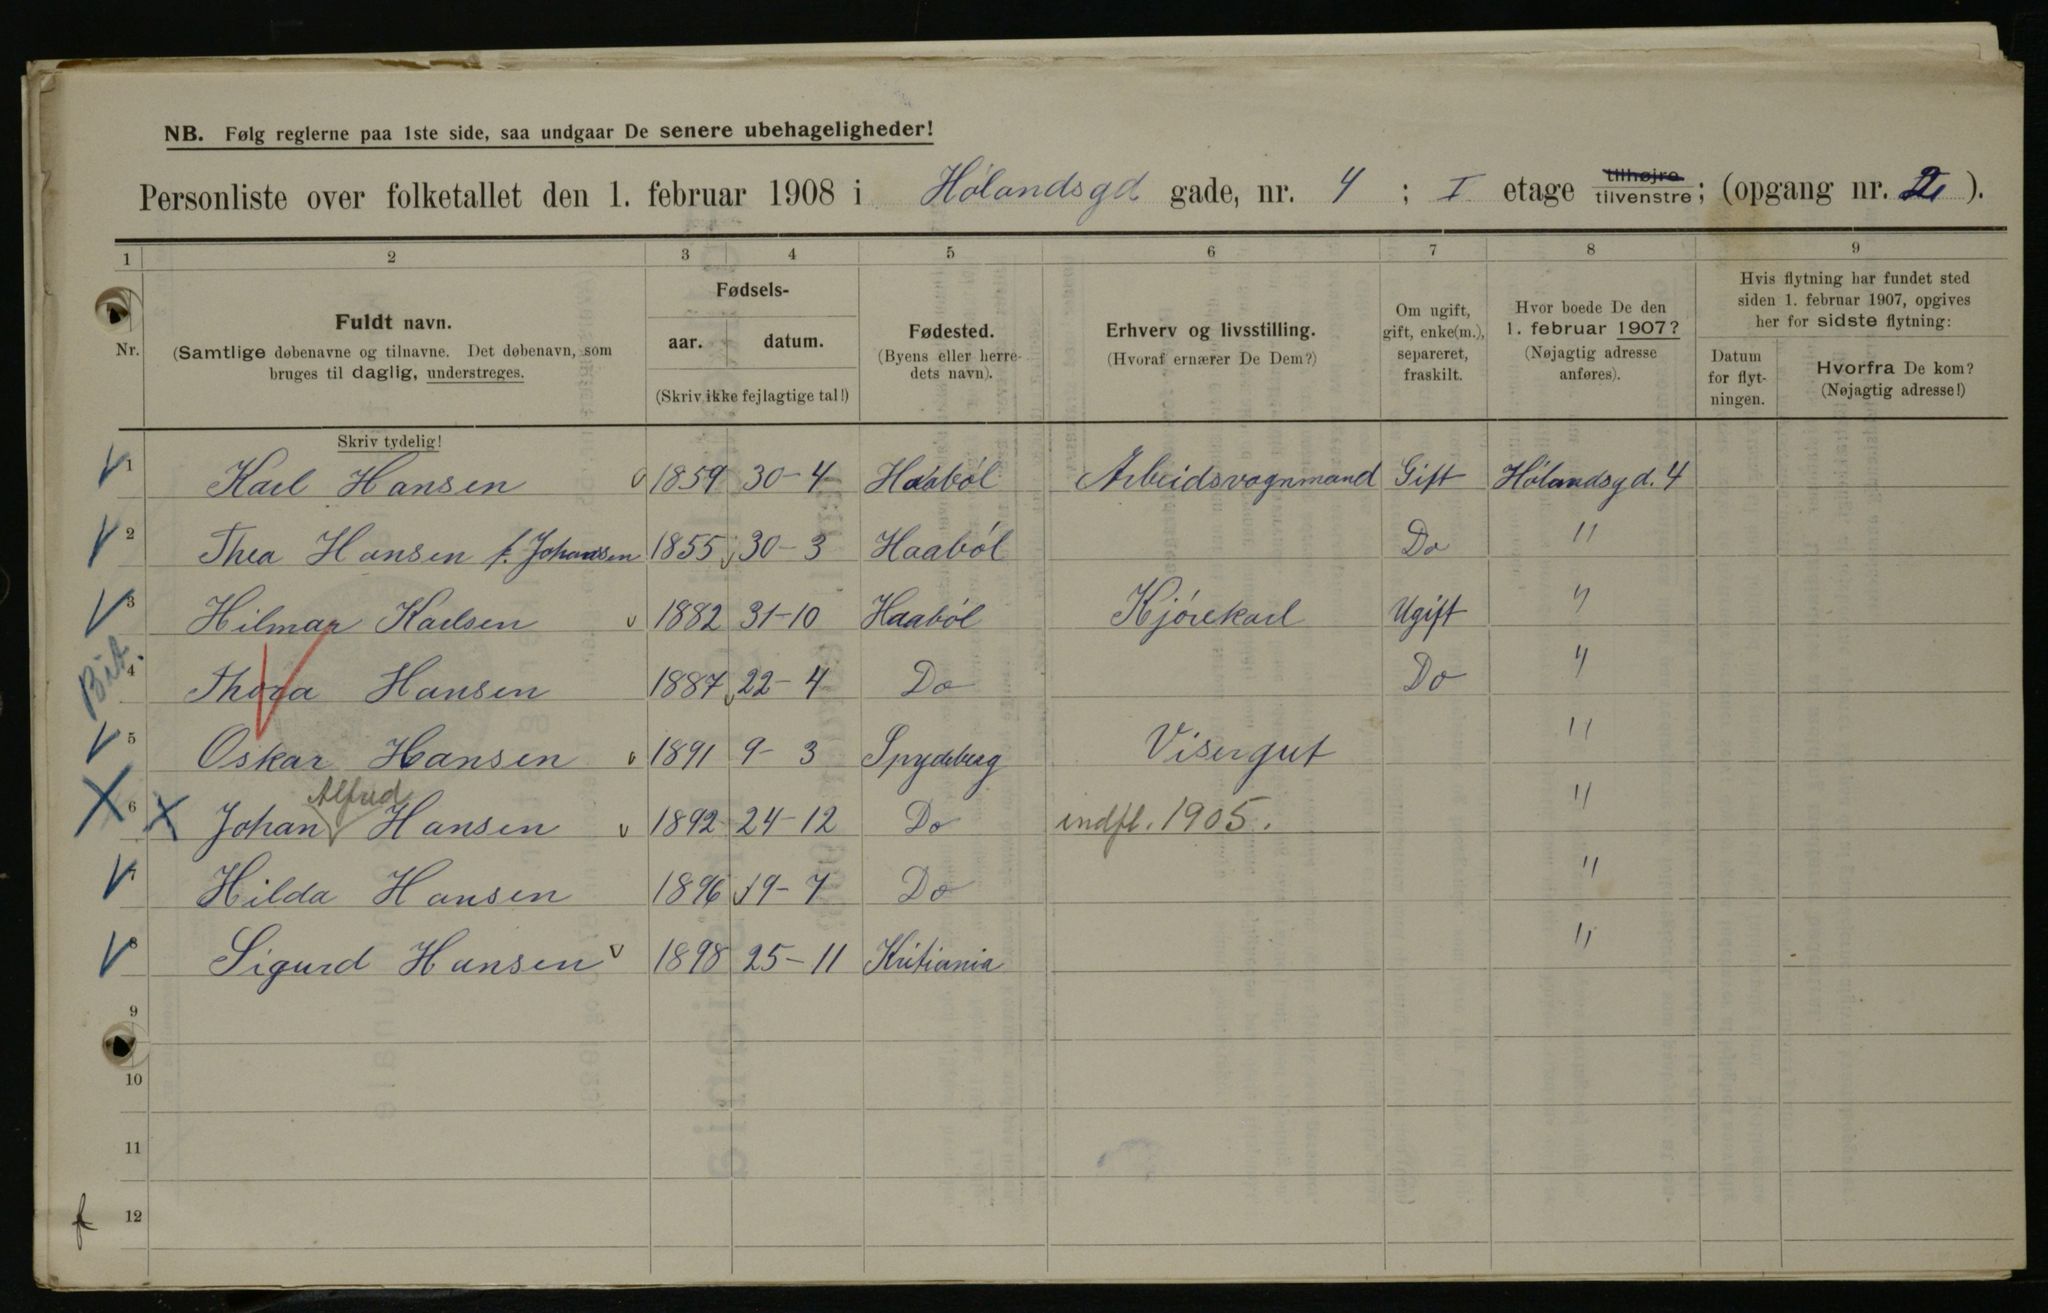 NB. Følg reglerne paa 1ste side, saa undgaar De senere ubehageligheder!
Personliste over folketallet den 1. februar 1908 i Hólandsgd gade, nr. 4 ; I etage tilhøjre tilvenstre; (opgang nr. 2 ).
1 2 3 4 5 6 7 8 9
Nr.
Fuldt navn.
(Samtlige døbenavne og tilnavne. Det døbenavn, som
bruges til daglig, understreges.
Skriv tydelig!
Fødsels-
aar. datum.
(Skriv ikke fejlagtige tal!)
Fødested.
(Byens eller herre-
dets navn).
Erhverv og livsstilling.
(Hvoraf ernærer De Dem?)
Om ugift,
gift, enke(m.),
separeret,
fraskilt.
Hvor boede De den
1. februar 1907?
(Nøjagtig adresse
anføres).
Hvis flytning har fundet sted
siden 1. februar 1907, opgives
her for sidste flytning:
Datum
for flyt-
ningen.
Hvorfra De kom?
(Nøjagtig adresse!)
1 Karl Hansen 1859 30-4 Haaból Arbeidsvognmand Gift Hólandsgd. 4
2 Thea Hansen f. Johanssen 1855 30-3 Haaból Do "
3 Hilmar Karlsen 1882 31-10 Haaból Kjórekarl Ugift "
Bit.
4 Thora Hansen 1887 22-4 Do Do "
5 Oskar Hansen 1891 9-3 Spydeberg Visergut "
Alfred
6 X Johan Hansen 1892 24-12 Do indfl. 1905. "
7 Hilda Hansen 1896 19-7 Do "
8 Sigurd Hansen 1898 25-11 Kritiania "
9
10
11
12